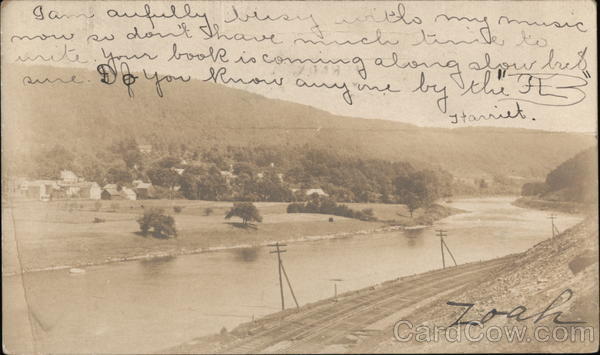 I am awfully busy with my music
now so don't have much time to
write. Your book is coming along slow but
sure. Do you know any one by the "
Harriet.
Zoah
CardCow.com